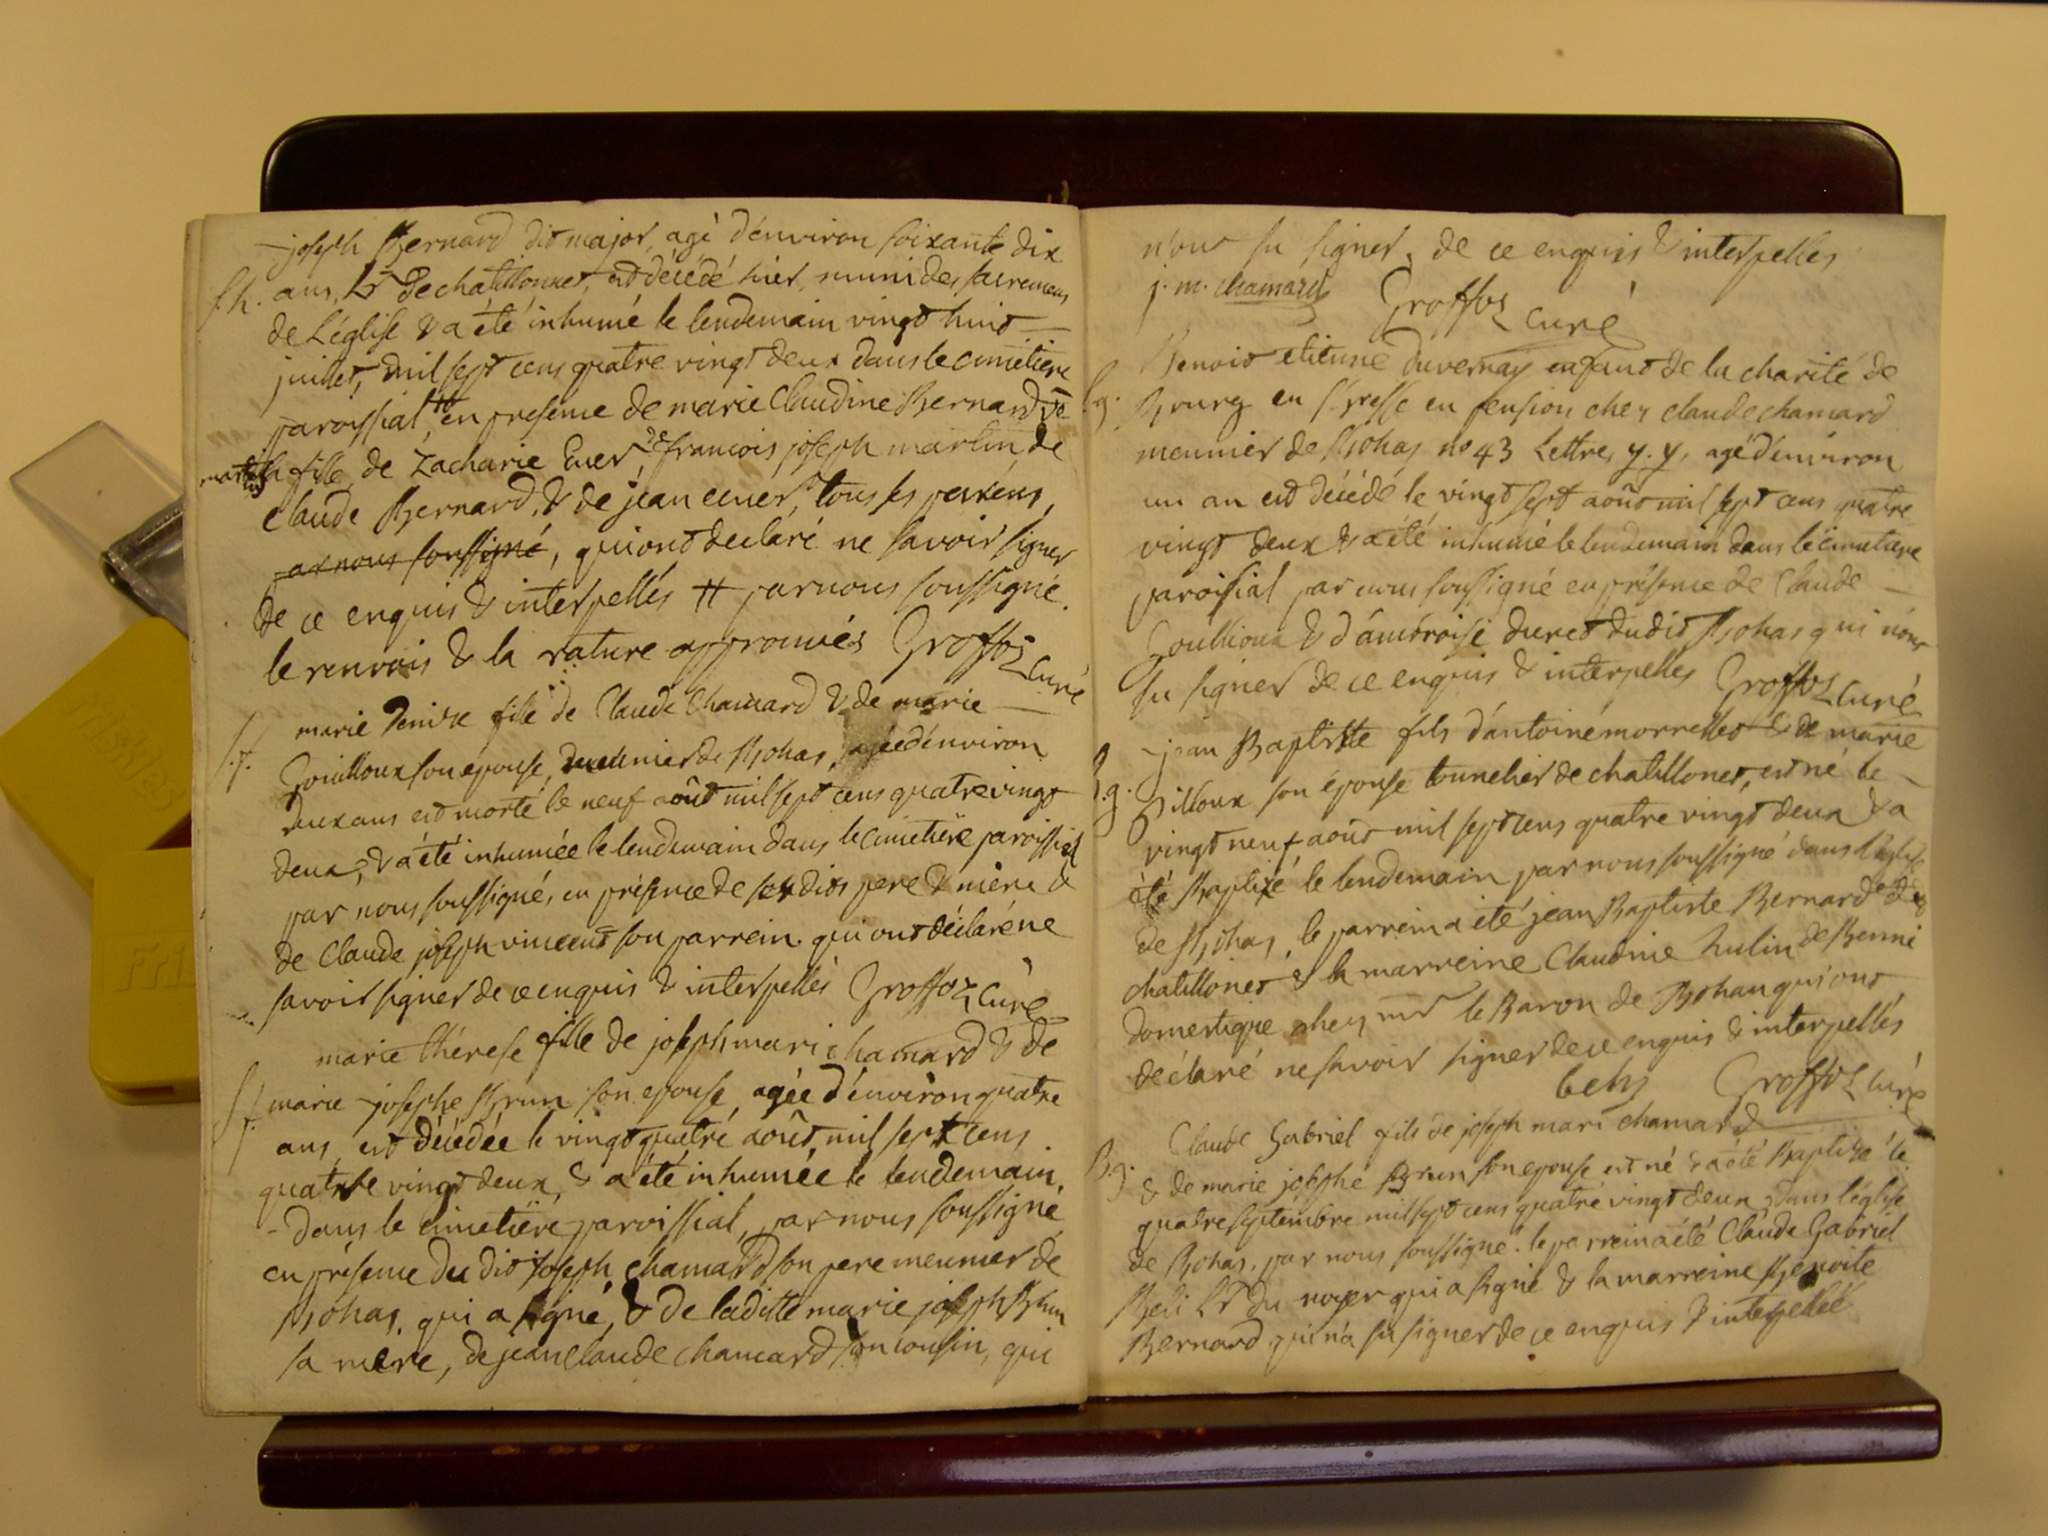 joseph Bernard dit major, agé d'environ soixante dix
S.h. ans, Lr de chatillonnet, est décédé hier, muni des sacremens
de L'église & a été inhumé le lendemain vingt huit
juillet, mil sept cens quatre vingt deux dans le cimetiere
paroissial, # en presence de marie Claudine Bernard
sa fille, de Zacharie Euer, de francois joseph martin, de
claude Bernard, & de jean cuier, tous ses parens,
par nous soussigné, qui ont declaré ne savoir signer
de ce enquis & interpellés # par nous soussigné.
le renvois & la rature approuvés Groffoz Curé
S.f. marie Denise fille de Claude Chamard & de marie
Gouilloux son épouse, meunier de Rohas, agée d'environ
deux ans est morte le neuf août mil sept cens quatre vingt
deux, & a été inhumée le lendemain dans le cimetiere paroissial
par nous soussigné, en présence de ses dits pere & mère &
de Claude joseph vincent son parrein qui ont déclaré ne
savoir signer de ce enquis & interpellés Groffoz Curé
marie thérese fille de joseph mari chamard & de
S.f. marie josephe Brun son epouse, agée d'environ quatre
ans, est décédée le vingt quatre août, mil sept cens
quatre vingt deux, & a été inhumée le lendemain
dans le cimetiére paroissial, par nous soussigné
en présence du dit joseph chamard son pere meunier de
Rohas, qui a signé, & de laditte marie joseph Brun
sa mere, de jean Claude chamard son cousin, qui
n'ont su signer, de ce enquis & interpellés
j. m. chamard Groffoz Curé
Benoit etienne duvernay enfant de la charité de
S.g. Bourg en Bresse en pension chez claude chamard
meunier de Rohas no 43 Lettre, y. y, agé d'environ
un an est décédé le vingt sept août mil sept cens quatre
vingt deux & a été inhumé le lendemain dans le cimetiere
paroissial par nous soussigné en présence de Claude
Goullioux & d'ambroise duret dudit Rohas qui n'ont
su signer de ce enquis & interpellés Groffoz Curé
jean Baptiste fils d'antoine morrellet & de marie
B.g. Gilloux son épouse tounelier de chatillonet, est né le
vingt neuf août mil sept cens quatre vingt deux & a
été Baptizé le lendemain par nous soussigné dans l'église
de Rohas, le parrein a été jean Baptiste Bernard de
chatillonet & la marreine Claudine hulin de
domestique chez mr le Baron de Rohan qui ont
déclaré ne savoir signer de ce enquis & interpellés
Groffoz Curé
Claude Gabriel fils de joseph mari chamard
B.g. & de marie josephe Brun son epouse est né & a été Baptizé le
quatre septembre mil sept cens quatre vingt deux, dans l'église
de Rohas, par nous soussigné. le parrein a été Claude Gabriel
Beli Lr du noyer qui a signé & la marreine Benoite
Bernard qui n'a su signer de ce enquis & interpellée